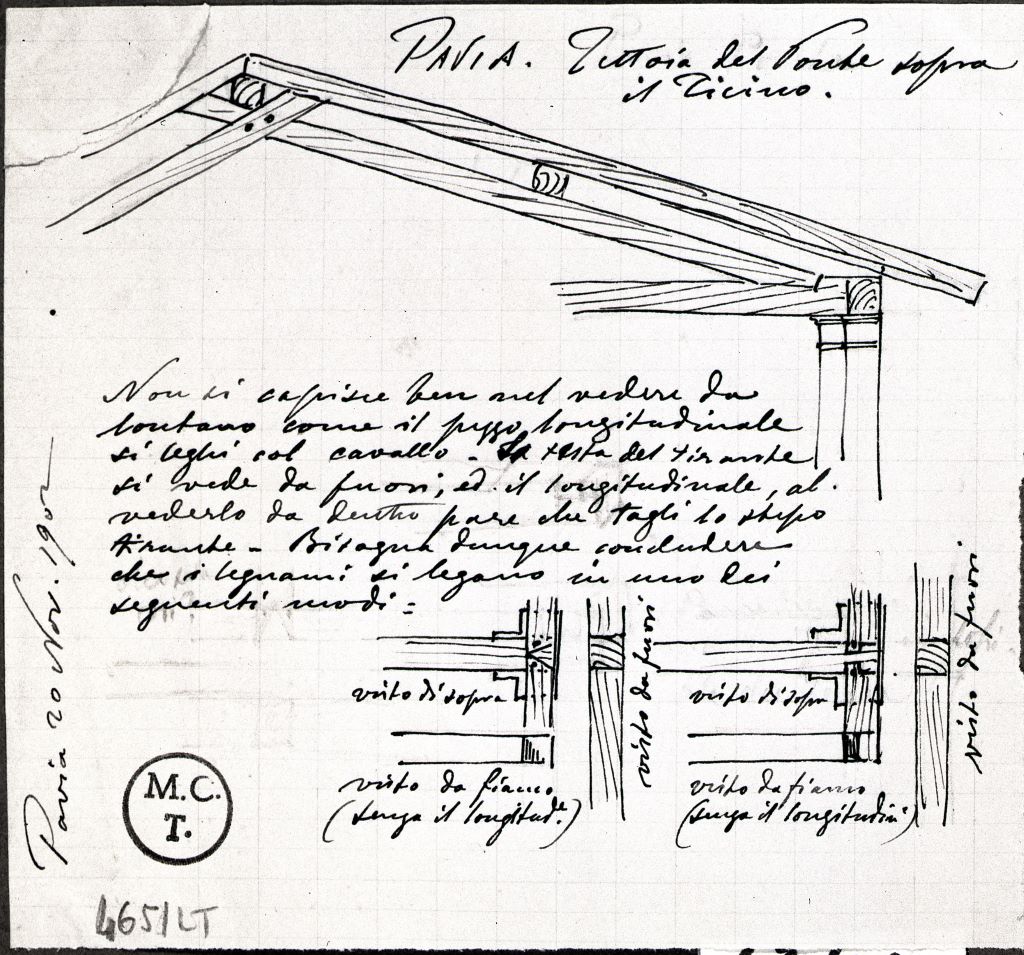 PAVIA. Tettoia del Ponte sopra
il Ticino.
Non si capisce ben nel vedere da
lontano come il pezzo longitudinale
si leghi col cavallo - La testa del tirante
si vede da fuori, ed il longitudinale, al
vederlo da dentro pare che tagli lo stesso
tirante - Bisogna dunque concludere
che i legnami si legano in uno dei
seguenti modi:
visto di sopra
visto da fianco
(senza il longitud.e)
visto da fuori
visto di sopra
visto da fianco
(senza il longitudin)
visto da fuori
Pavia 20 Nov. 1902
M.C.
T.
465/LT